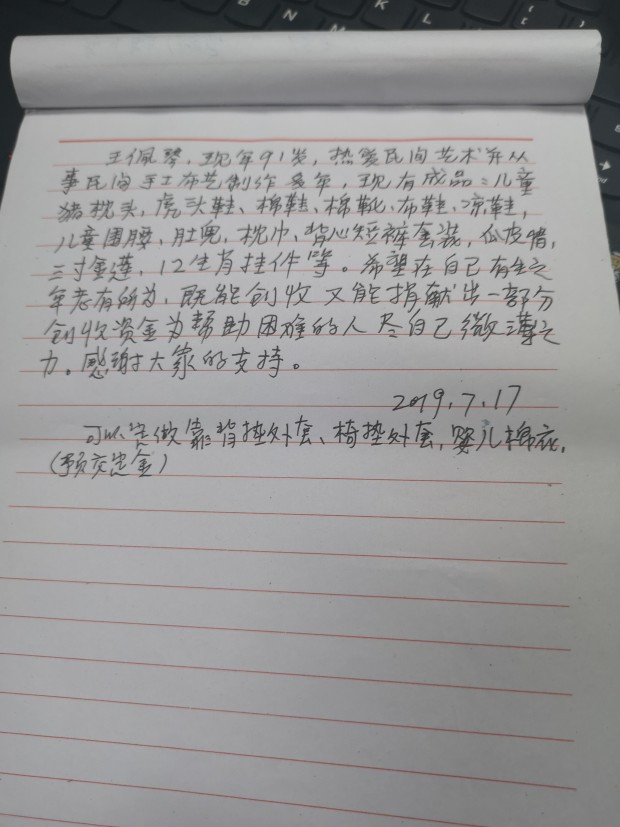 王佩琴，现年91岁，热爱民间艺术并从
事民间手工布艺制作多年，现有成品：儿童
猪枕头，虎头鞋、棉鞋、棉靴、布鞋、凉鞋，
儿童围腰、肚兜，枕巾、背心短裤套装，瓜皮帽，
三寸金莲，12生肖挂件等。希望在自己有生之
年老有所为，既能创收又能捐献出一部分
创收资金为帮助困难的人尽自己微薄之
力。感谢大家的支持。
2019.7.17
可以定做靠背垫外套、椅垫外套，婴儿棉衣，
（预交定金）
B N M K L